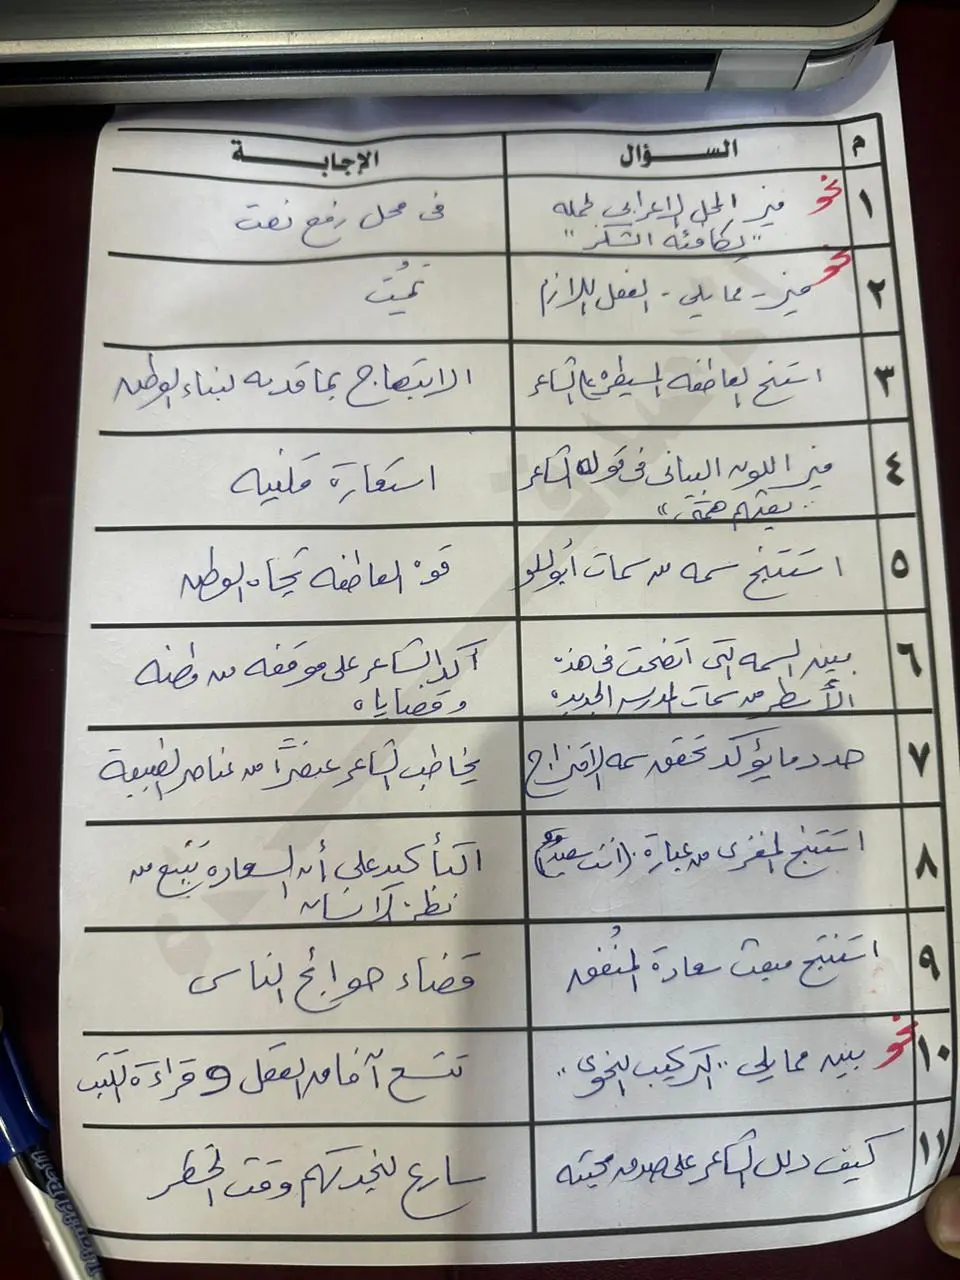 م السؤال الإجابة
نحو
١ ميز المحل الإعرابي لجملة في محل رفع نعت
"يكافئه الشكر"
نحو
٢ ميز - مما يلي - الفعل اللازم تميت
٣ استنتج العاطفه المسيطرة على الشاعر الابتهاج بما قدمه لبناء الوطن
٤ ميز اللون البياني في قول الشاعر استعارة مكنيه
"بعثهم همة"
٥ استنتج سمه من سمات أبوللو قوة العاطفه تجاه الوطن
٦ بين السمه التى اتضحت في هذه أكد الشاعر على موقفه من وطنه
الأسطر من سمات المدرسه الجديدة وقضاياه
٧ حدد ما يؤكد تحقق سمه الامتزاج يخاطب الشاعر عنصرًا من عناصر الطبيعة
٨ استنتج المغزى من عبارة (أنت التأكيد على أن السعادة تنبع من
نظرة الإنسان
٩ استنتج مبعث سعادة المُنفق قضاء حوائج الناس
نحو
١٠ بين مما يلي "التركيب النحوى" تتسع آفاق العقل و قراءة الكتب
١١ كيف دلل الشاعر على صدق محبته سارع لنجدتهم وقت الخطر